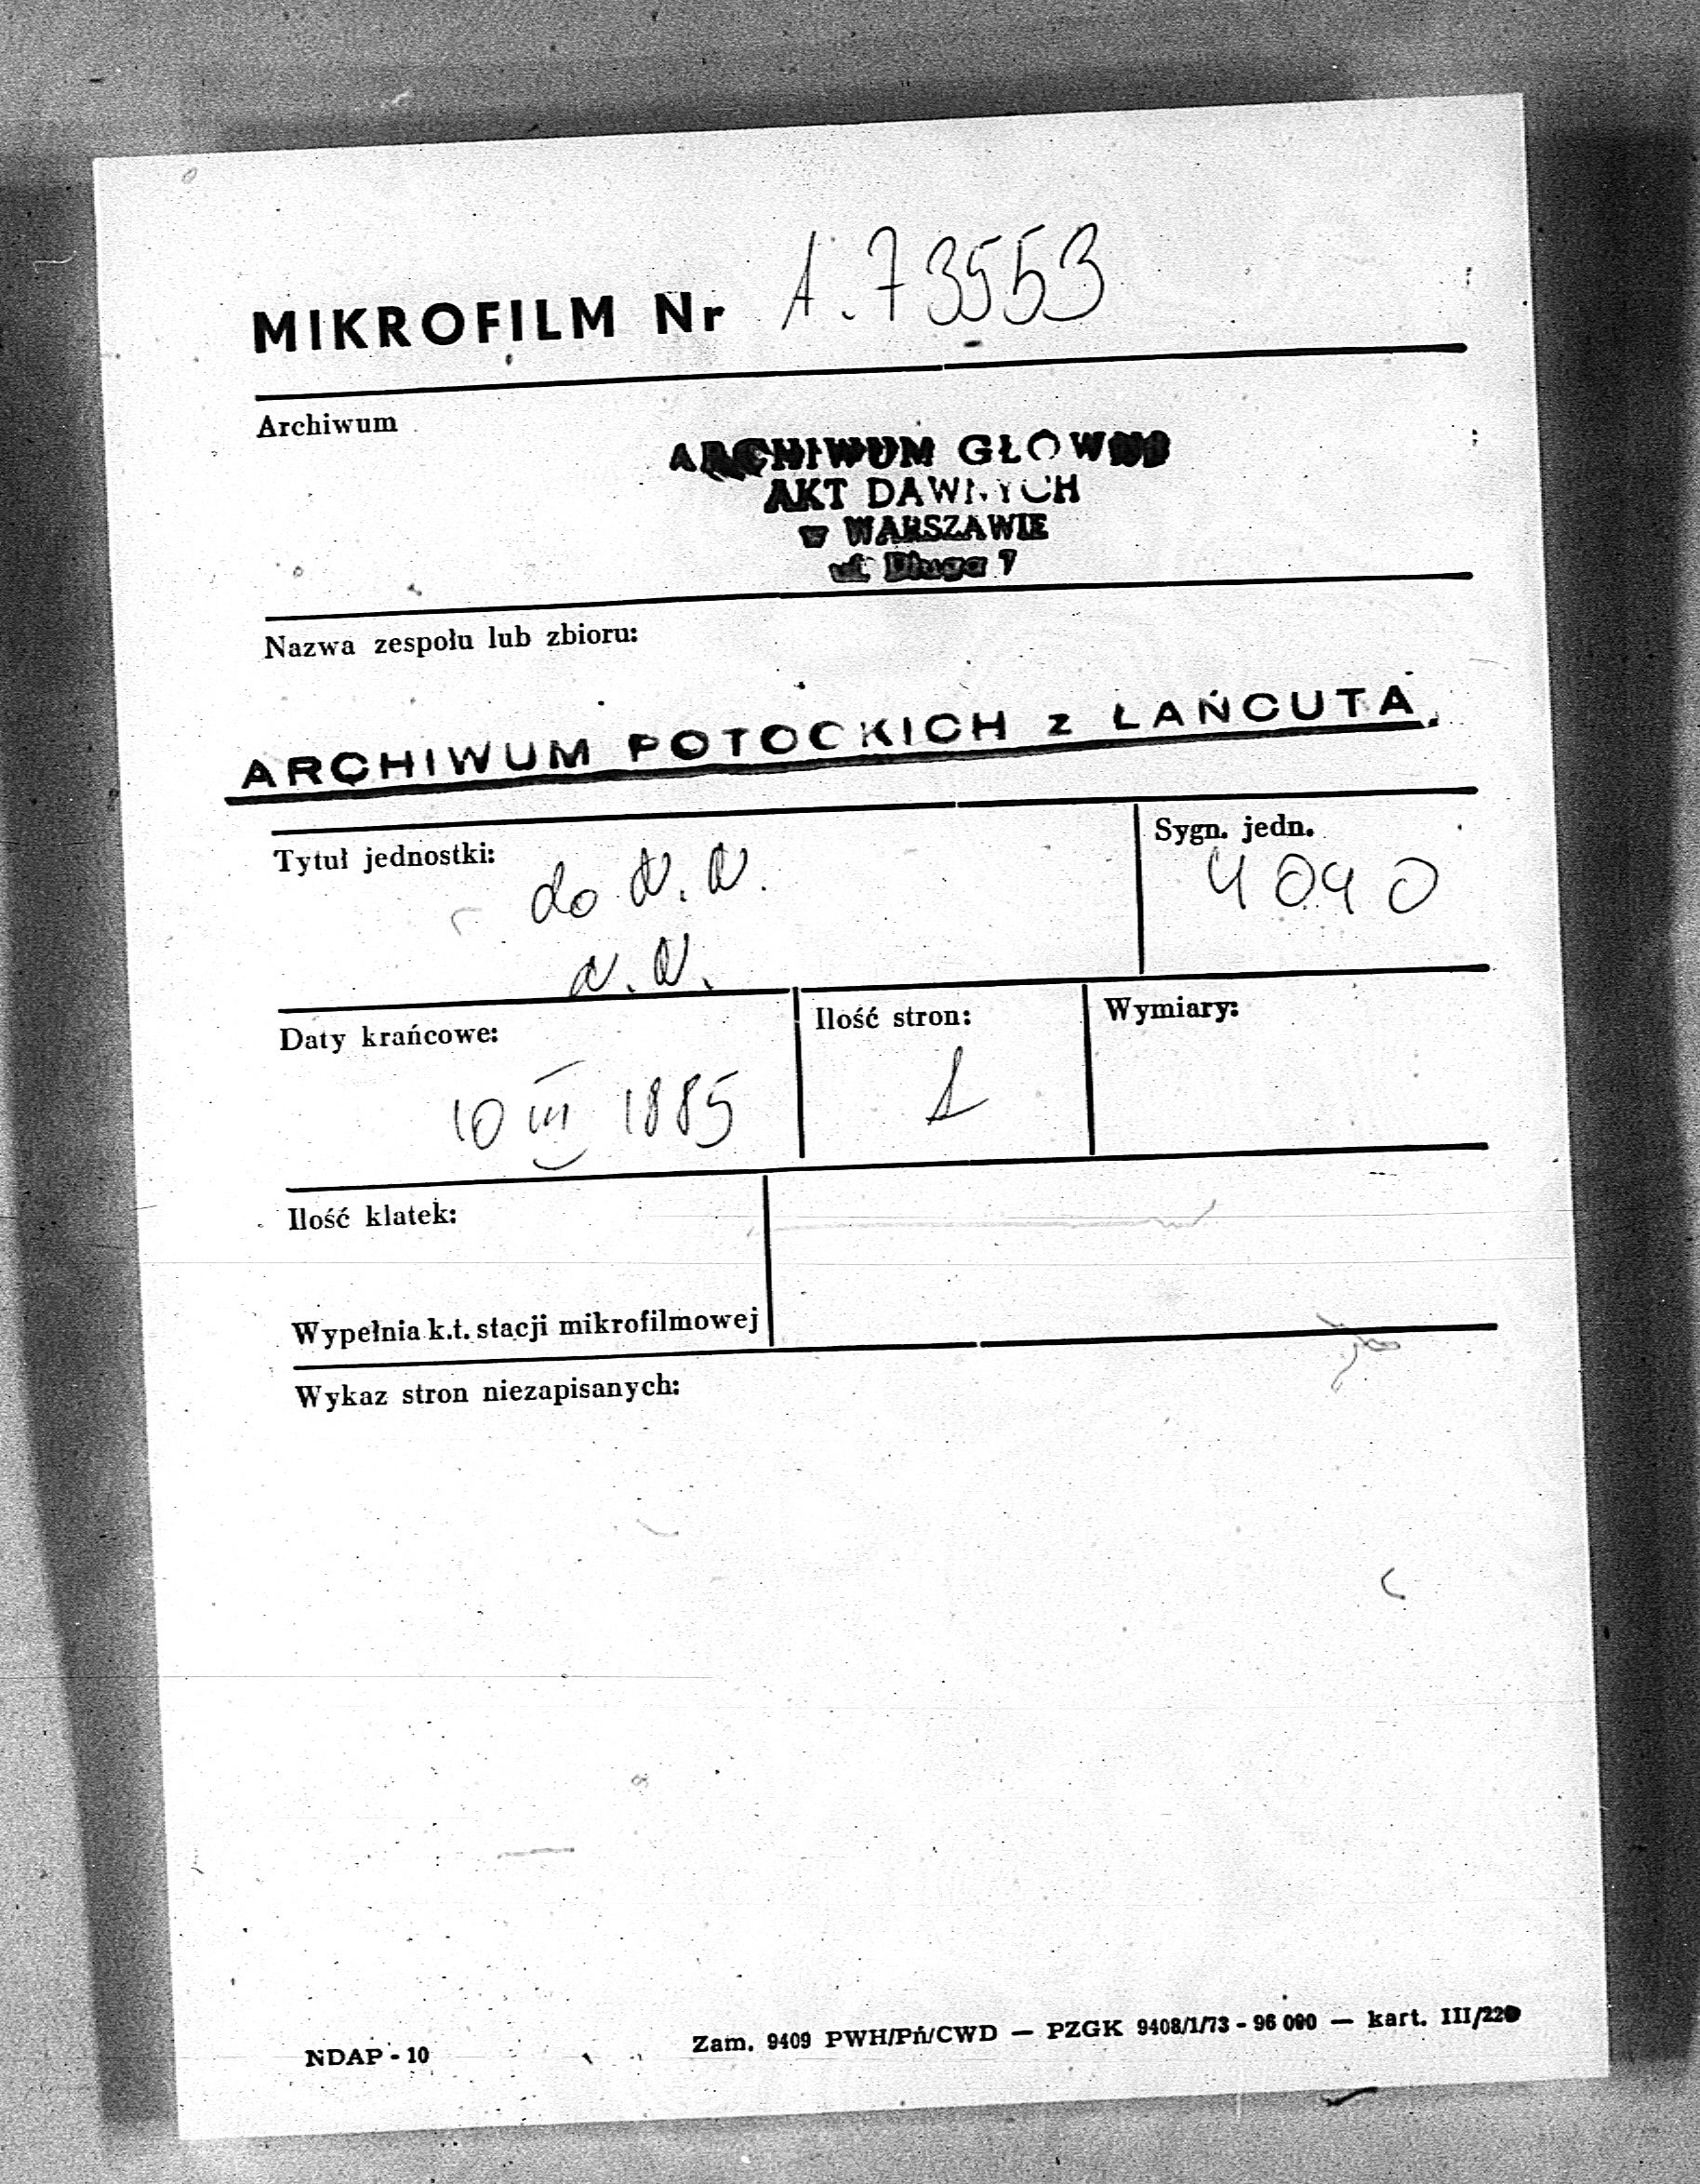 MIKROFILM Nr A.73553
Archiwum
ARCHIWUM GŁÓWNE
AKT DAWNYCH
w WARSZAWIE
ul. Długa 7
Nazwa zespołu lub zbioru:
ARCHIWUM POTOCKICH z ŁAŃCUTA.
Tytuł jednostki:
do N.N.
N.N.
Sygn. jedn.
4090
Daty krańcowe:
10 III 1885
Ilość stron:
1
Wymiary:
Ilość klatek:
Wypełnia k.t. stacji mikrofilmowej
Wykaz stron niezapisanych:
NDAP - 10
Zam. 9409 PWH/Pń/CWD — PZGK 9408/1/73 - 96 000 — kart. III/220